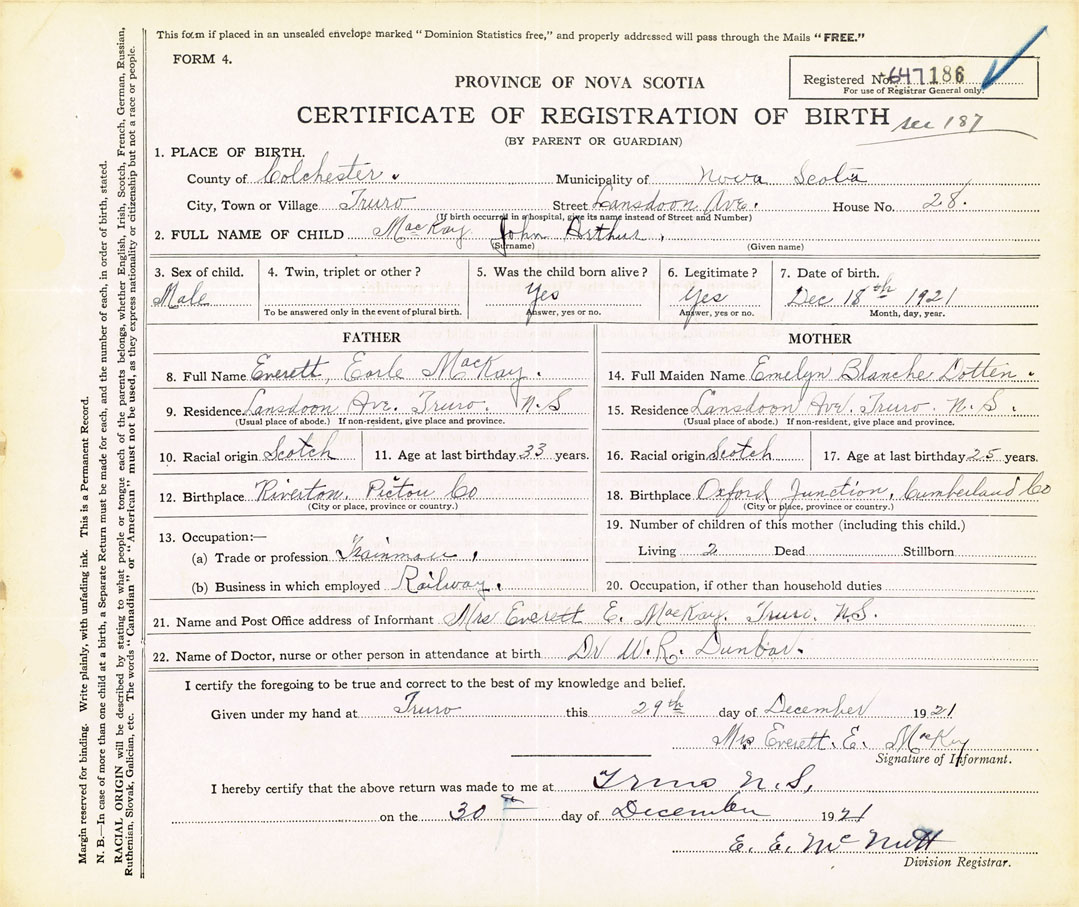 This form if placed in an unsealed envelope marked "Dominion Statistics free," and properly addressed will pass through the Mails "FREE."
FORM 4.
Registered No. 647186
For use of Registrar General only.
PROVINCE OF NOVA SCOTIA
CERTIFICATE OF REGISTRATION OF BIRTH see 187
(BY PARENT OR GUARDIAN)
1. PLACE OF BIRTH.
County of Colchester. Municipality of Nova Scotia
City, Town or Village Truro Street Lansdoon Ave. House No. 28.
(If birth occurred in a hospital, give its name instead of Street and Number)
2. FULL NAME OF CHILD MacKay John Arthur.
(Surname) (Given name)
3. Sex of child. 4. Twin, triplet or other? 5. Was the child born alive? 6. Legitimate? 7. Date of birth.
Male Yes Yes Dec 18th 1921
To be answered only in the event of plural birth. Answer, yes or no. Answer, yes or no. Month, day, year.
FATHER
8. Full Name Everett, Earle MacKay.
9. Residence Lansdoon Ave. Truro. N.S
(Usual place of abode.) If non-resident, give place and province.
10. Racial origin Scotch 11. Age at last birthday 33 years.
12. Birthplace Riverton, Pictou Co
(City or place, province or country.)
13. Occupation:—
(a) Trade or profession Trainman.
(b) Business in which employed Railway.
MOTHER
14. Full Maiden Name Emelyn Blanche Dotten.
15. Residence Lansdoon Ave. Truro. N.S.
(Usual place of abode.) If non-resident, give place and province.
16. Racial origin Scotch 17. Age at last birthday 25 years.
18. Birthplace Oxford Junction, Cumberland Co
(City or place, province or country.)
19. Number of children of this mother (including this child.)
Living 2 Dead Stillborn
20. Occupation, if other than household duties
21. Name and Post Office address of Informant Mrs Everett E. MacKay. Truro. N.S.
22. Name of Doctor, nurse or other person in attendance at birth Dr W.R. Dunbar.
I certify the foregoing to be true and correct to the best of my knowledge and belief.
Given under my hand at Truro this 29th day of December 1921
Mrs Everett. E. MacKay
Signature of Informant.
I hereby certify that the above return was made to me at Truro N.S,
on the 30th day of December 1921
E. E. McNutt
Division Registrar.
Margin reserved for binding. Write plainly, with unfading ink. This is a Permanent Record.
N. B.—In case of more than one child at a birth, a Separate Return must be made for each, and the number of each, in order of birth, stated.
RACIAL ORIGIN will be described by stating to what people or tongue each of the parents belongs, whether English, Irish, Scotch, French, German, Russian,
Ruthenian, Slovak, Galician, etc. The words "Canadian" or "American" must not be used, as they express nationality or citizenship but not a race or people.